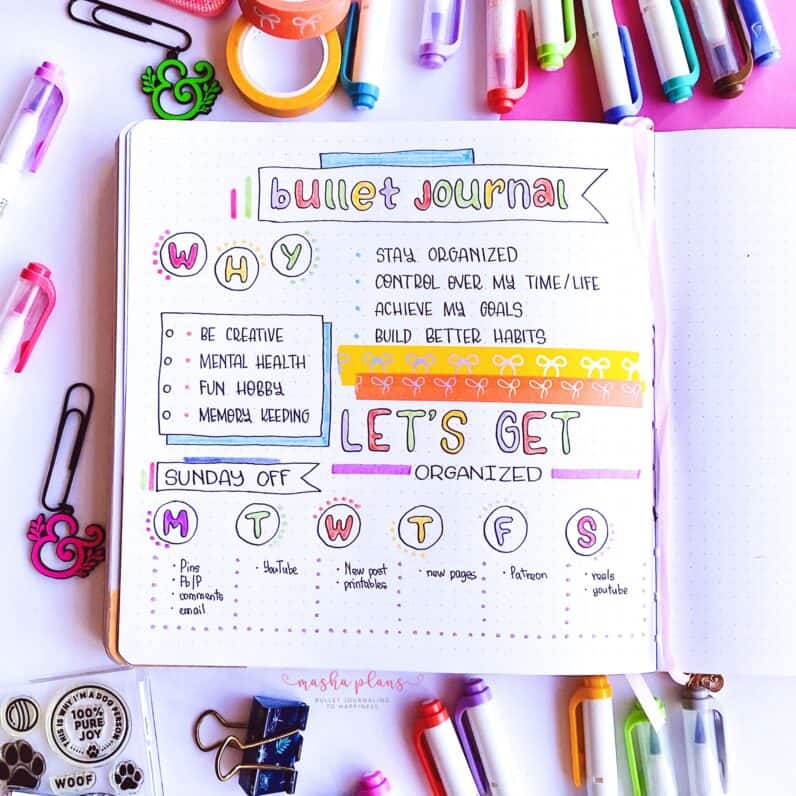 bullet journal
WHY
STAY ORGANIZED
CONTROL OVER MY TIME/LIFE
ACHIEVE MY GOALS
BUILD BETTER HABITS
BE CREATIVE
MENTAL HEALTH
FUN HOBBY
MEMORY KEEPING
LET'S GET
ORGANIZED
SUNDAY OFF
M T W T F S
Pins
Fb/P
comments
email
YouTube
New post
printables
new pages
Patreon
reels
youtube
masha plans
BULLET JOURNALING
TO HAPPINESS
THIS IS WHY I'M A DOG PERSON
100%
PURE
JOY
WOOF
&
&